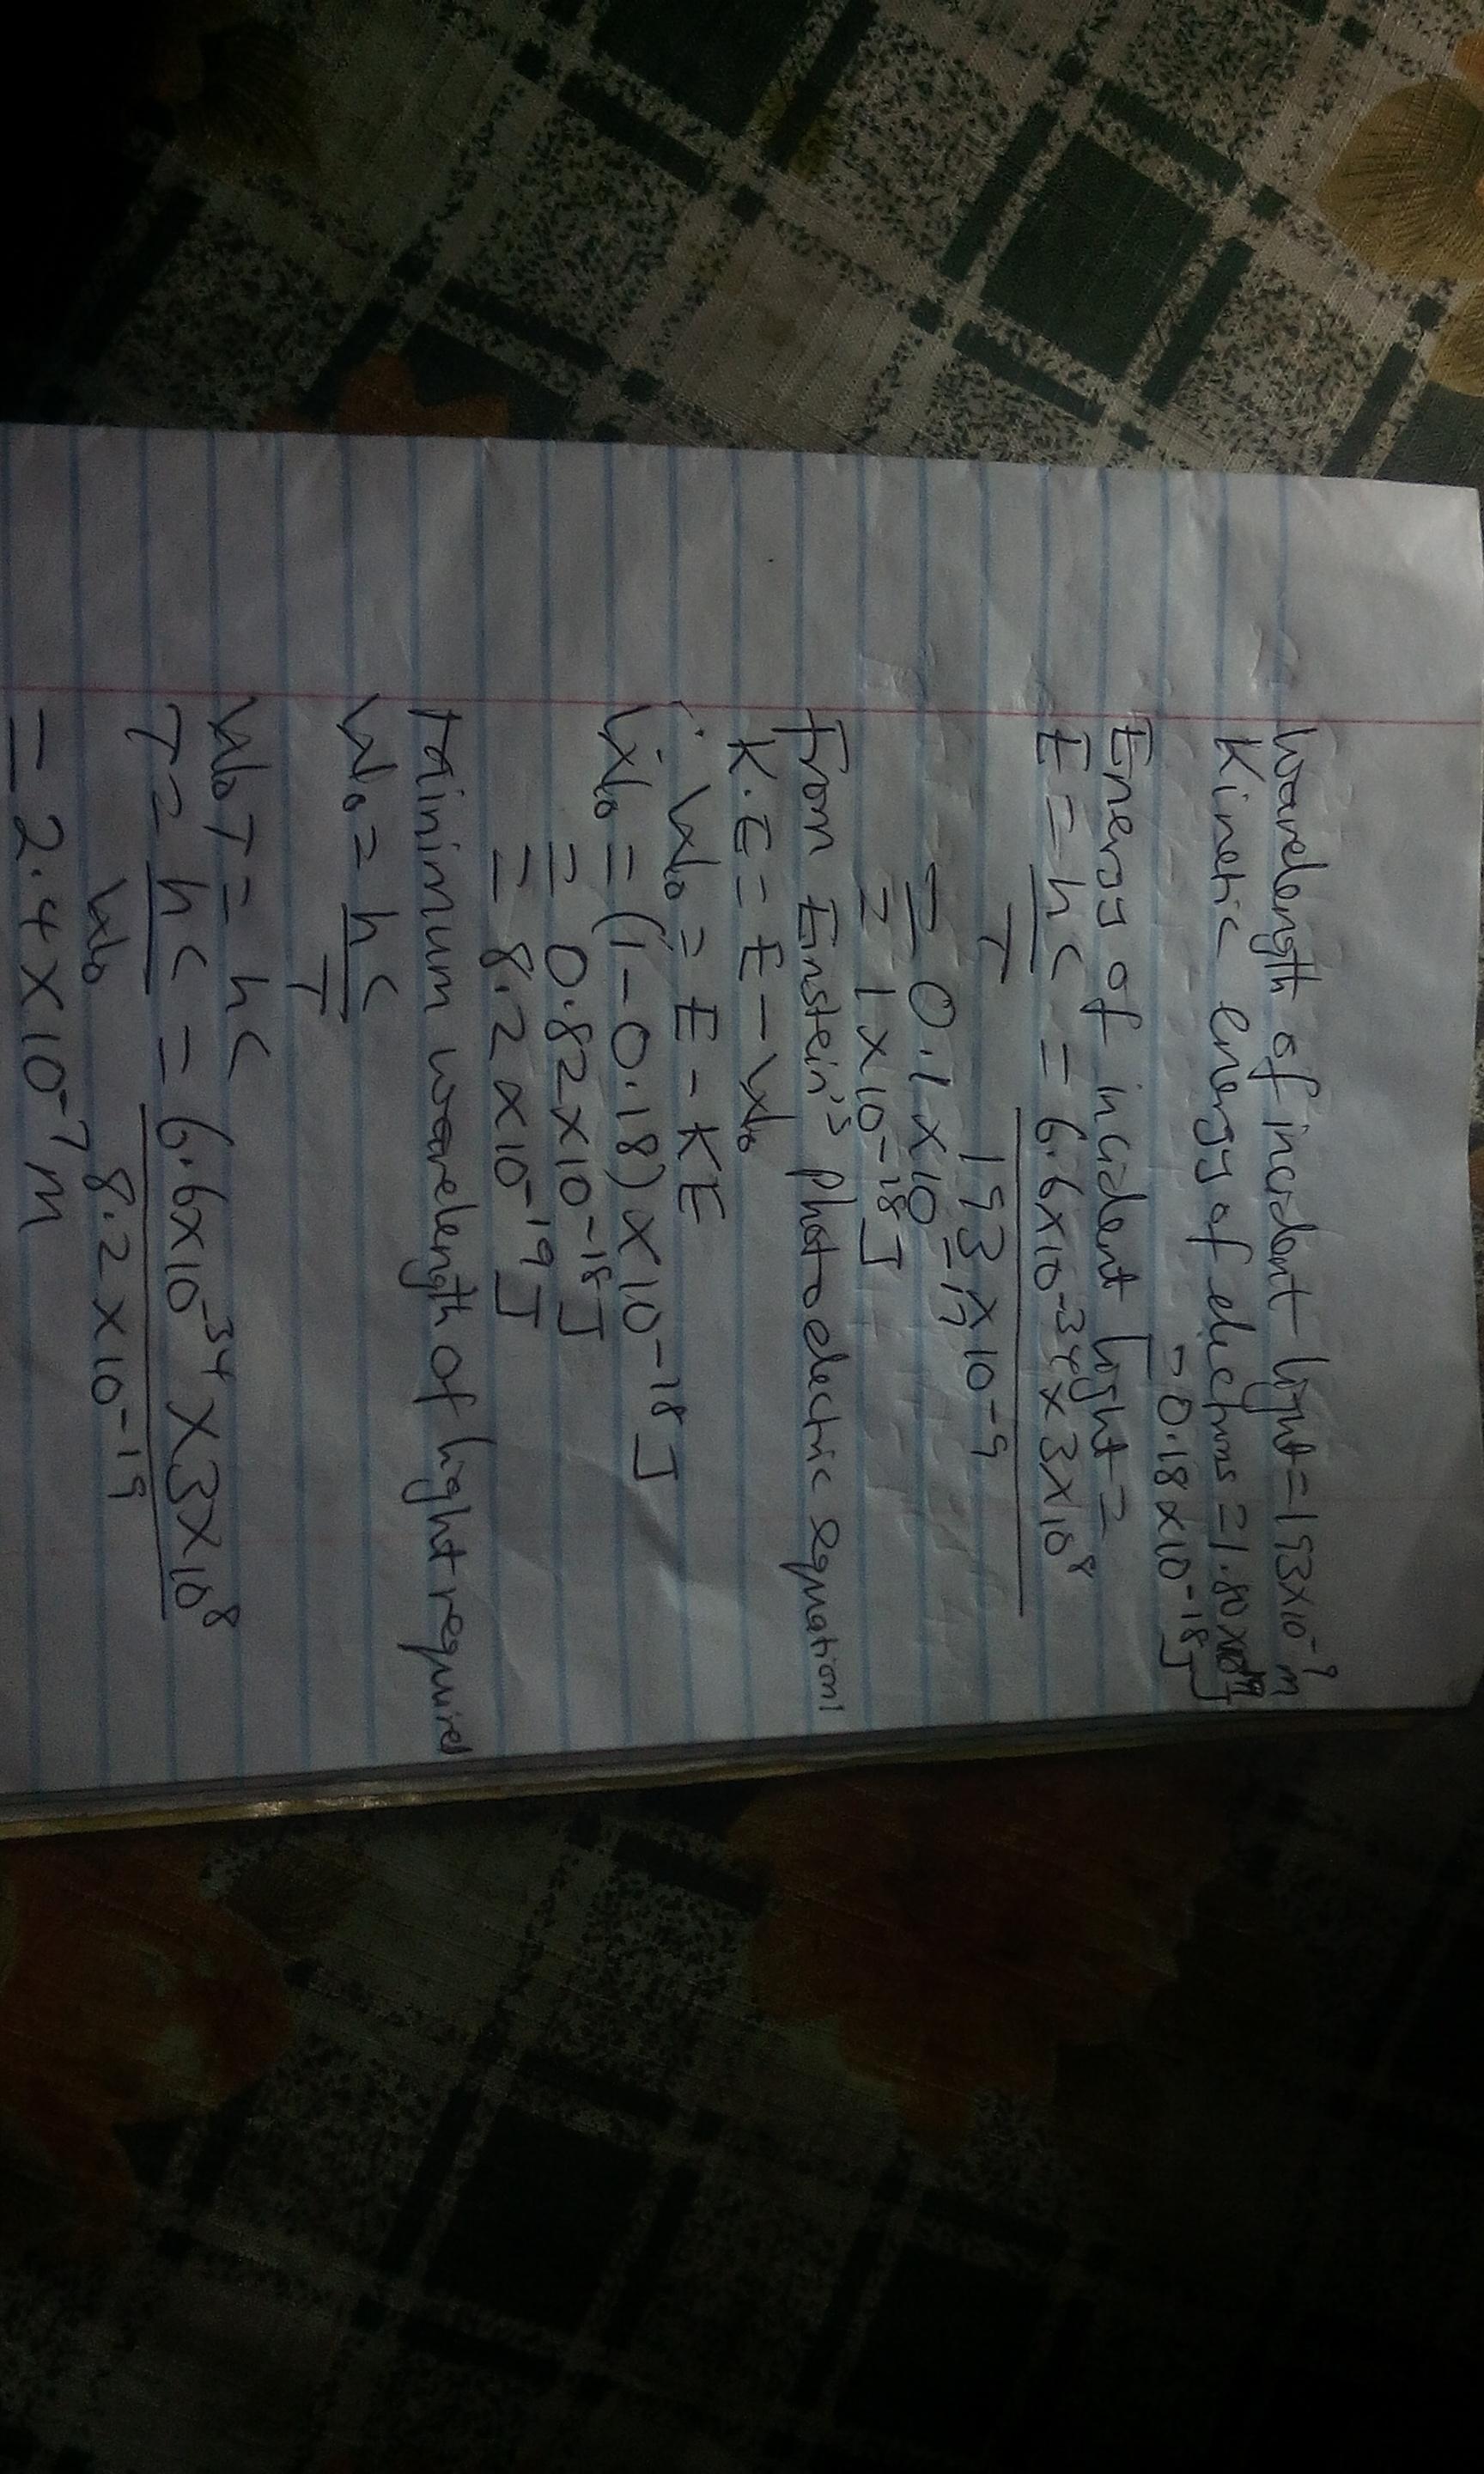 Wavelength of incident light = 193x10⁻⁹m
Kinetic energy of electrons = 1.80x10⁻¹⁹J
= 0.18x10⁻¹⁸J
Energy of incident light =
E = hc = 6.6x10⁻³⁴x3x10⁸
T 193x10⁻⁹
= 0.1x10⁻¹⁷
= 1x10⁻¹⁸J
from Einstein's photoelectric equation
K.E = E - W₀
∴ W₀ = E - KE
W₀ = (1-0.18)x10⁻¹⁸J
= 0.82x10⁻¹⁸J
= 8.2x10⁻¹⁹J
Minimum wavelength of light required
W₀ = hc
T
W₀T = hc
T = hc = 6.6x10⁻³⁴x3x10⁸
W₀ 8.2x10⁻¹⁹
= 2.4x10⁻⁷m